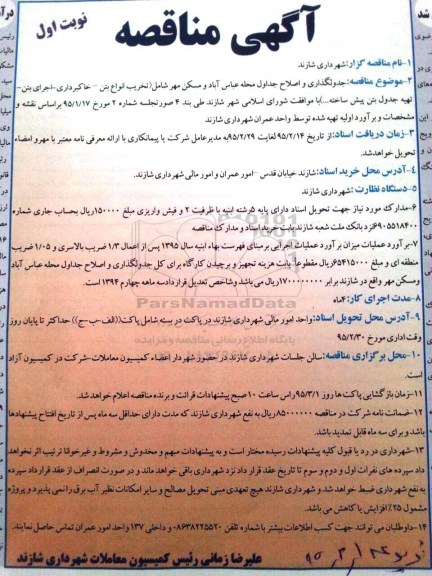 آگهی مناقصه
نوبت اول
۱-نام مناقصه گزار: شهرداری شازند
۲-موضوع مناقصه: جدولگذاری و اصلاح جداول محله عباس آباد و مسکن مهر شامل(تخریب انواع بتن - خاکبرداری-اجرای بتن-
تهیه جدول بتن پیش ساخته...)با موافقت شورای اسلامی شهر شازند طی بند ۴ صورتجلسه شماره ۲ مورخ ۹۵/۱/۱۷ براساس نقشه و
مشخصات و برآورد اولیه تهیه شده توسط واحد عمران شهرداری شازند
۳-زمان دریافت اسناد: از تاریخ ۹۵/۲/۱۴ لغایت ۹۵/۲/۲۹ به مدیرعامل شرکت یا پیمانکاری با ارائه معرفی نامه معتبر با مهر و امضاء
تحویل خواهد شد.
۴-آدرس محل خرید اسناد: شازند خیابان قدس -امور عمران و امور مالی شهرداری شازند.
۵-دستگاه نظارت : شهرداری شازند
۶-مدارک مورد نیاز جهت تحویل اسناد دارای پایه ۵رشته ابنیه با ظرفیت ۲ و فیش واریزی مبلغ ۱۵۰۰۰۰ریال بحساب جاری شماره
۶۹۰۵۵۱۸۴۰۰نزد بانک ملت شعبه شازند بابت خرید اسناد و مدارک مناقصه
۷-برآورد عملیات میزان برآورد عملیات اجرایی برمبنای فهرست بهاء ابنیه سال ۱۳۹۵ پس از اعمال ۱/۳ ضریب بالاسری و ۱/۰۵ ضریب
منطقه ای و مبلغ ۶۵۴۱۵۰۰۰ریال مقطوعاً بابت هزینه تجهیز و برچیدن کارگاه برای کل جدولگذاری و اصلاح جداول محله عباس آباد
ومسکن مهر واقع در شازند برابر ۱۷۰۰۰۰۰۰۰۰ ریال می باشد وشاخص تعدیل قراردادسه ماهه چهارم ۱۳۹۴ است.
۸-مدت اجرای کار: ۴ماه
۹-آدرس محل تحویل اسناد: واحد امور مالی شهرداری شازند در پاکت در بسته شامل پاکت((الف-ب-ج)) حداکثر تا پایان روز
وقت اداری مورخ ۹۵/۲/۳۰
۱۰-محل برگزاری مناقصه: سالن جلسات شهرداری شازند در حضور شهردار اعضاء کمیسیون معاملات-شرکت در کمیسیون آزاد
است.
۱۱-زمان بازگشایی پاکت ها روز ۹۵/۳/۱ راس ساعت ۱۰صبح پیشنهادات قرائت و برنده مناقصه اعلام خواهد شد.
۱۲-ضمانت نامه شرکت در مناقصه ۸۵۰۰۰۰۰۰ریال به نفع شهرداری شازند که مدت دارای حداقل سه ماه پس از تاریخ افتتاح پیشنهادها
باشد و برای سه ماه قابل تمدید باشد.
۱۳-شهرداری در رد یا قبول کلیه پیشنهادات رسیده مختار است و به پیشنهادات مبهم و مخدوش و مشروط و غیرخوانا ترتیب اثر نخواهد
داد سپرده های نفرات اول و دوم و سوم تا تاریخ عقد قرار داد نزد شهرداری باقی خواهد ماند و در صورت انصراف از عقد قرارداد سپرده
به نفع شهرداری ضبط خواهد شد و شهرداری شازند هیچ تعهدی مبنی تحویل مصالح و سایر امکانات نظیر آب برق را نمی پذیرد و پروژه
مشمول ۲۵٪ افزایش یا کاهش می باشد.
۱۴-داوطلبان می توانند جهت کسب اطلاعات بیشتر با شماره تلفن ۰۸۶۳۸۲۲۵۵۲۰ و داخلی ۱۳۷ واحد امور عمران تماس حاصل نمایند.
علیرضا زمانی رئیس کمیسیون معاملات شهرداری شازند
ParsNamadData
پایگاه اطلاع رسانی مناقصه و مزایده